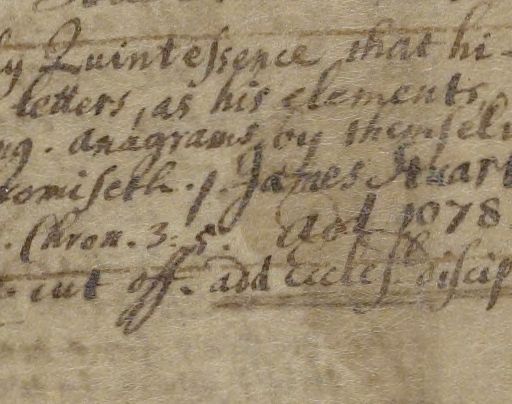 ly Quintessence that hi-
letters, as his elements,
ng. anagrams, by themselv
romiseth. / James Stuart
. Chron. 3. 5. Act 1078
. cut off. add Eccles. discip